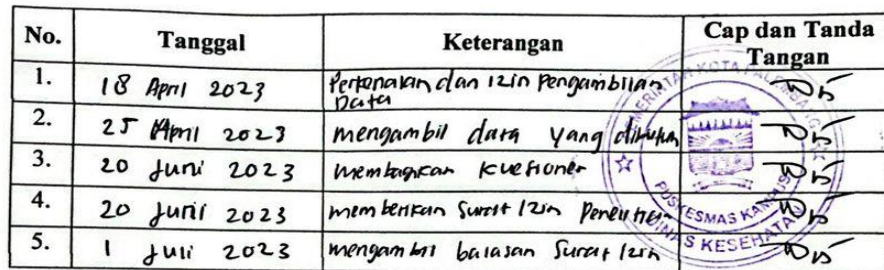 No. Tanggal Keterangan Cap dan Tanda
Tangan
1. 18 April 2023 Perkenalan dan izin Pengambilan
Data
2. 25 April 2023 mengambil data yang dibutuh
3. 20 Juni 2023 membagikan kuesioner
4. 20 Juni 2023 memberikan Surat Izin Penelitian
5. 1 Juli 2023 mengambil balasan Surat Izin
PEMERINTAH KOTA PALEMBANG
PUSKESMAS KAMPUS
DINAS KESEHATAN